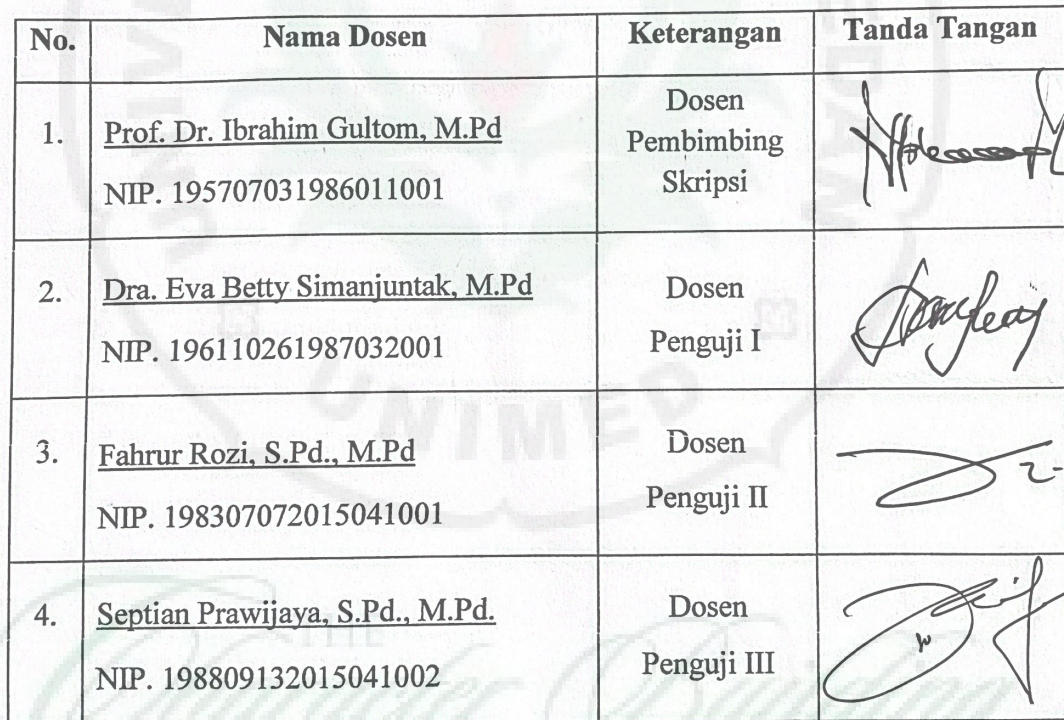 No. Nama Dosen Keterangan Tanda Tangan
1. Prof. Dr. Ibrahim Gultom, M.Pd
NIP. 195707031986011001
Dosen
Pembimbing
Skripsi
2. Dra. Eva Betty Simanjuntak, M.Pd
NIP. 196110261987032001
Dosen
Penguji I
3. Fahrur Rozi, S.Pd., M.Pd
NIP. 198307072015041001
Dosen
Penguji II
4. Septian Prawijaya, S.Pd., M.Pd.
NIP. 198809132015041002
Dosen
Penguji III
UNIMED
THE
Character Building